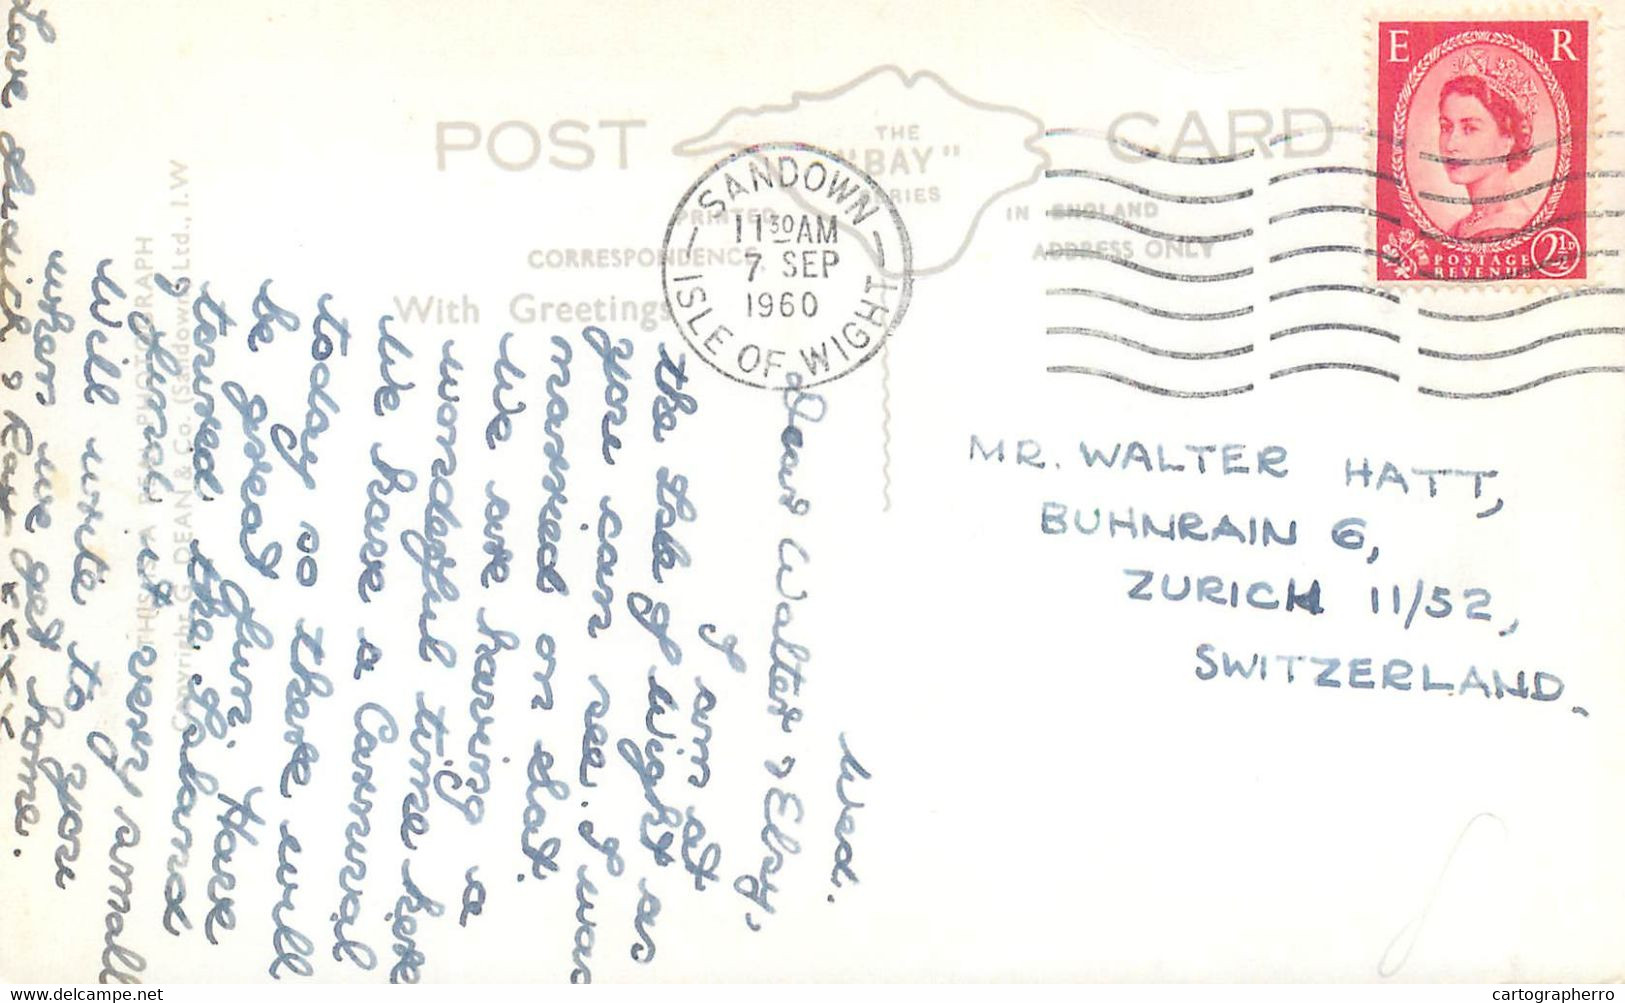 POST CARD
THE
"BAY"
SERIES
PRINTED IN ENGLAND
CORRESPONDENCE ADDRESS ONLY
With Greetings
SANDOWN
11 30 AM
7 SEP
1960
ISLE OF WIGHT
E R
POSTAGE
REVENUE
2½D
MR. WALTER HATT,
BUHNRAIN 6,
ZURICH 11/52,
SWITZERLAND.
Wed.
Dear Walter & Elsy,
I am at
the Isle of Wight as
you can see. I was
married on Sat.
We are having a
wonderful time here
We have a Carnival
today so there will
be great fun. Have
toured the Island
& found it very small
Will write to you
when we get home.
Love & Ray xxxx
THIS IS A REAL PHOTOGRAPH
Copyright G. DEAN & Co. (Sandown) Ltd., I.W
cartographerro
www.delcampe.net